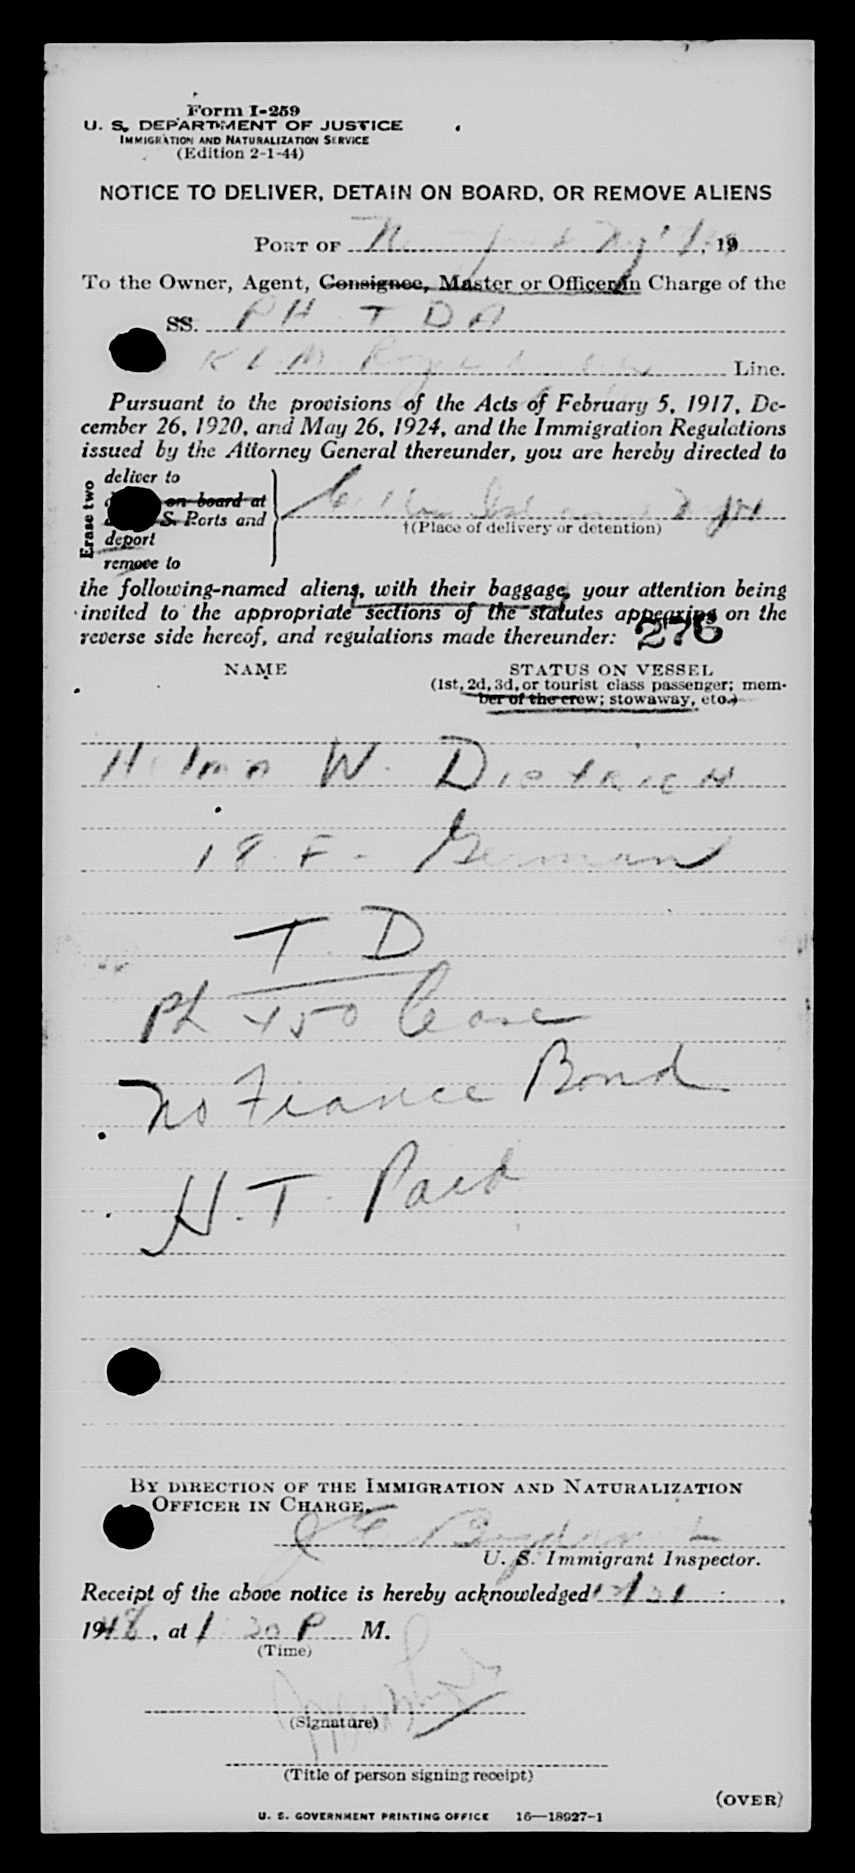 Form I-259
U. S. DEPARTMENT OF JUSTICE
IMMIGRATION AND NATURALIZATION SERVICE
(Edition 2-1-44)
NOTICE TO DELIVER, DETAIN ON BOARD, OR REMOVE ALIENS
PORT OF , 19
To the Owner, Agent, Consignee, Master or Officer in Charge of the
SS. PH T D A
K L M Line.
Pursuant to the provisions of the Acts of February 5, 1917, De-
cember 26, 1920, and May 26, 1924, and the Immigration Regulations
issued by the Attorney General thereunder, you are hereby directed to
Erase two
deliver to
on board at
S. Ports and
deport
remove to
†(Place of delivery or detention)
the following-named aliens, with their baggage, your attention being
invited to the appropriate sections of the statutes appearing on the
reverse side hereof, and regulations made thereunder: 276
NAME STATUS ON VESSEL
(1st, 2d, 3d, or tourist class passenger; mem-
ber of the crew; stowaway, etc.)
W. Dietrich
18 F - German
T. D
Ph 450 Case
No Fiance Bond
H. T. Paid
BY DIRECTION OF THE IMMIGRATION AND NATURALIZATION
OFFICER IN CHARGE.
U. S. Immigrant Inspector.
Receipt of the above notice is hereby acknowledged
1948, at 1 20 P M.
(Time)
(Signature)
(Title of person signing receipt)
(OVER)
U. S. GOVERNMENT PRINTING OFFICE 16—18927-1